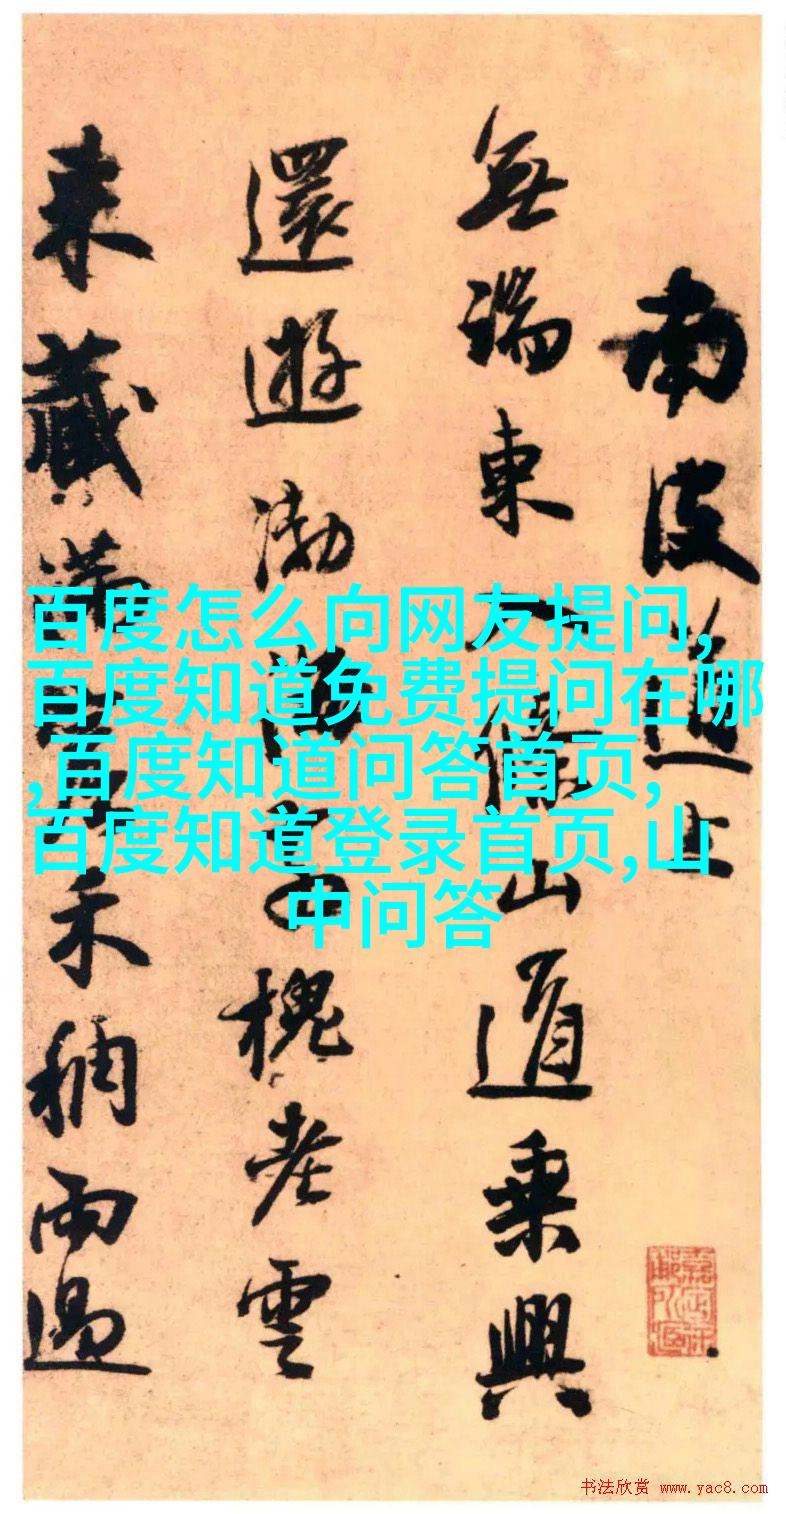 南皮道上
無端東入條山道乘興
還遊渤海
槐老雲
來藏滿
禾稠雨過
百度怎么向网友提问,
百度知道免费提问在哪
,百度知道问答首页,
百度知道登录首页,山
中问答
书法欣赏 www.yac8.com